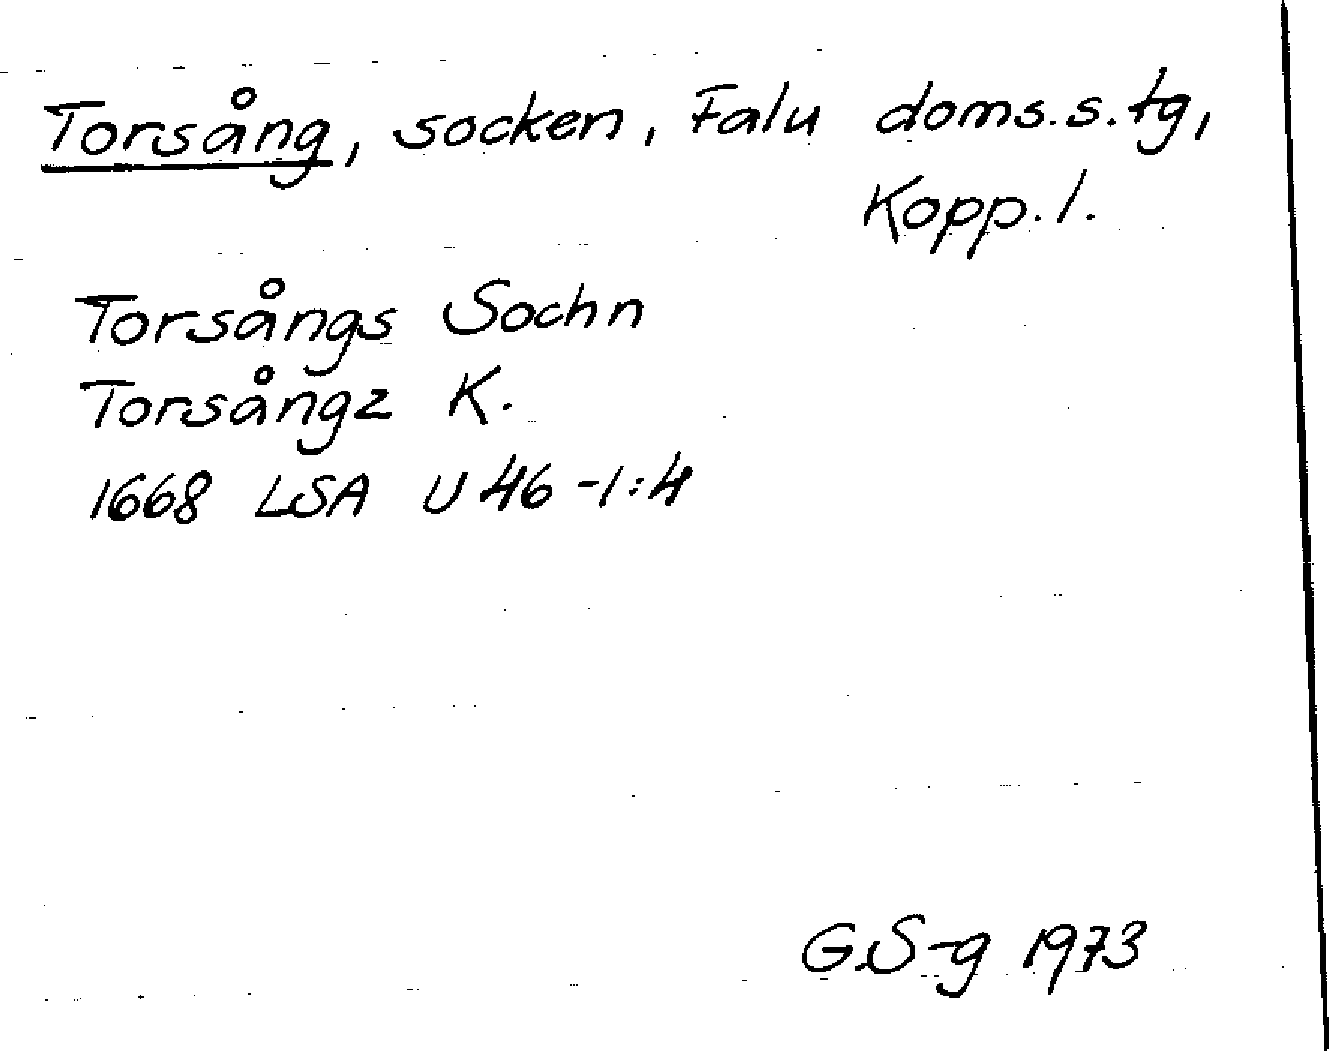 Torsång, socken, Falu doms.s.tg,
Kopp. l.
Torsångs Sochn
Torsångz K.
1668 LSA U 46-1:4
G.S-g 1973